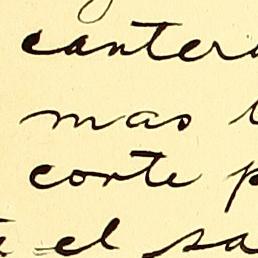 canter
mas
corte p
el sa